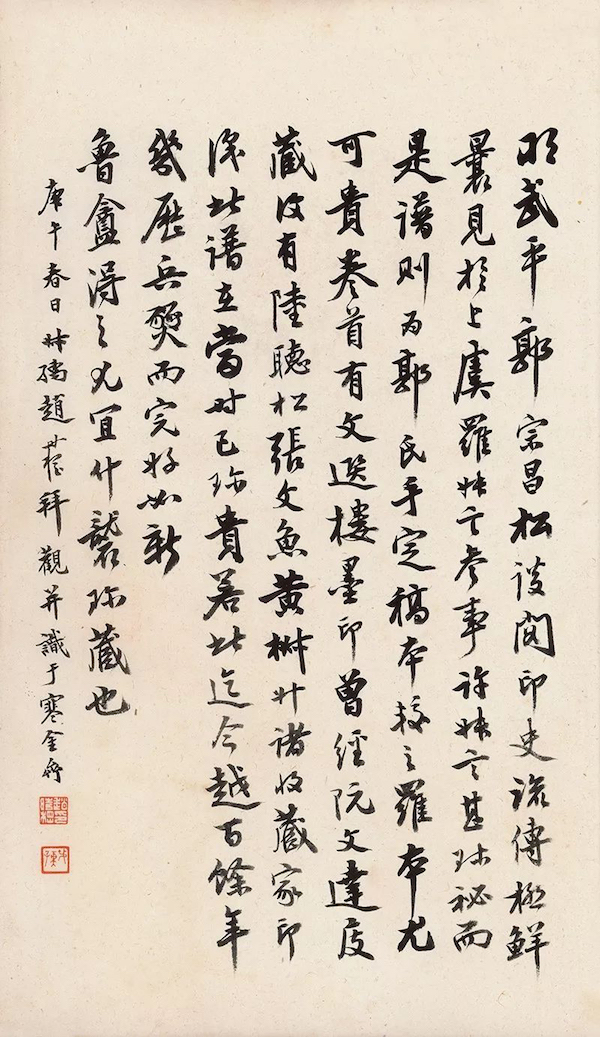 明武平郭宗昌松談閣印史流傳極鮮
曩見於上虞羅叔言參事許叔言甚珎祕而
是譜則為郭氏手定稿本校之羅本尤
可貴卷首有文選樓墨印曾經阮文達庋
藏後有陸聽松張文魚黃椒升諸收藏家印
識此譜在當時已珎貴若此迄今越百餘年
幾歷兵燹而完好如新
魯盦得之尤宜什襲珎藏也
庚午春日叔孺趙時棡拜觀并識于寒金齋
叔孺